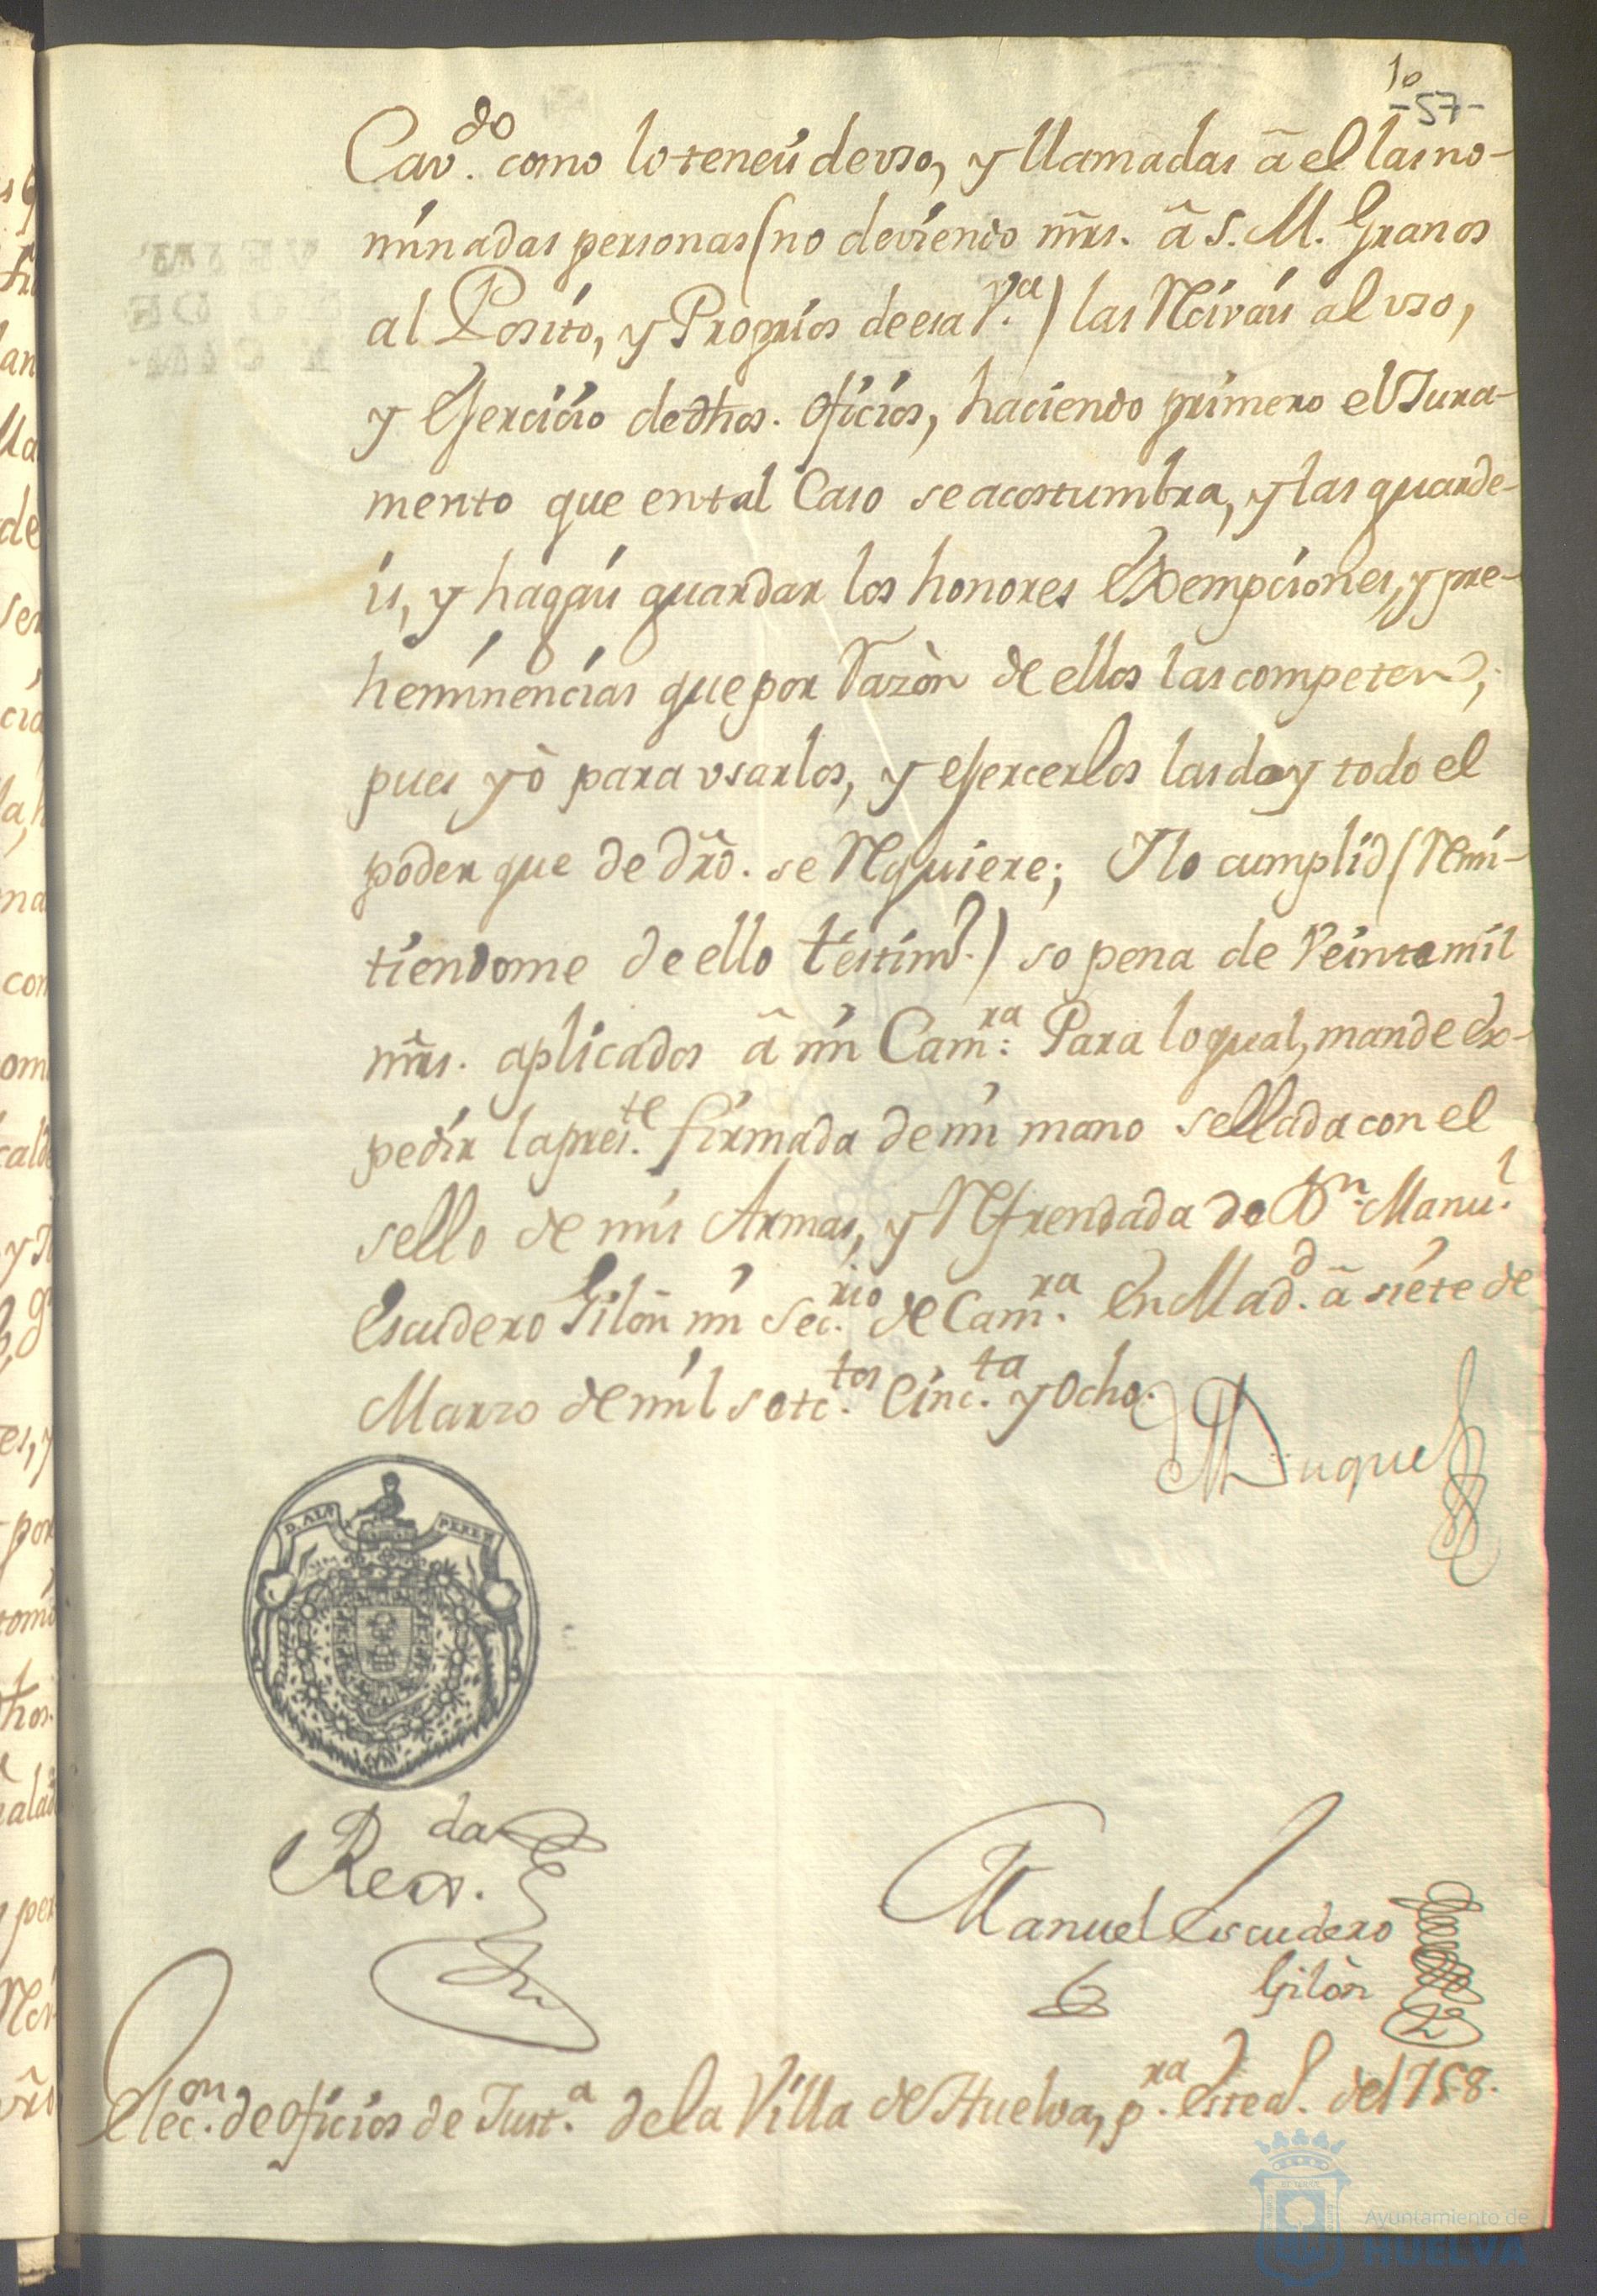 10
-57-
Cav.do como lo teneis de vso, y llamadas â el las no-
minadas personas (no deviendo mrs. â S. M. Granos
al Posito, y Proprios de esa V.a) las Recivais al vso,
y Exercicio de dhos. oficios, haciendo primero el Jura-
mento que en tal Caso se acostumbra, y las guarde-
is, y hagais guardar los honores Exempciones, y pre-
heminencias que por Razòn de ellos las competen;
pues yò para vsarlos, y exercerlos las doy todo el
poder que de dro. se Requiere; Y lo cumplid (Remi-
tiendome de ello testimo.) so pena de Veinte mil
mrs. aplicados â mi Cam.ra Para lo qual, mande Ex-
pedir la pres.te firmada de mi mano sellada con el
sello de mis Armas, y Refrendada de Dn. Manu.l
Escudero Gilòn mi Sec.rio de Cam.ra En Mad.d â siete de
Marzo de mil setc.tos Cinc.ta y Ocho.
El Duque
D. ALO
PEREZ
Rex.da
Manuel Escudero
Gilòn
Elec.on de oficios de Just.a de la Villa de Huelva, p.ra este a.l del 758.
Ayuntamiento de
HUELVA